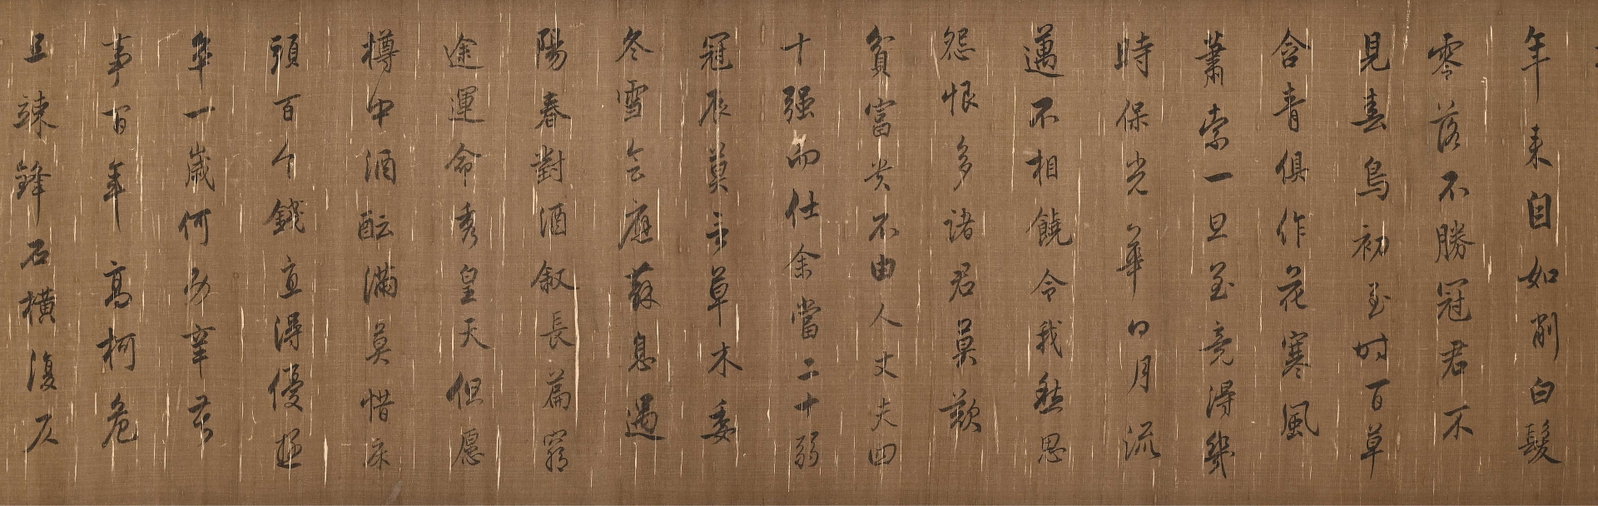 年来自如削白髮
零落不勝冠君不
見春鳥初至时百草
含青俱作花寒風
蕭索一旦至竟得幾
時保光華日月流
邁不相饒令我愁思
怨恨多諸君莫歎
貧富貴不由人丈夫四
十强而仕余當二十弱
冠辰莫言草木委
冬雪会應蘇息遇
陽春對酒叙長篇窮
途運命委皇天但愿
樽中酒酝滿莫惜床
頭百个錢直得優遊
卒一歲何勞辛苦
事百年 高柯危
且竦鋒石横復仄